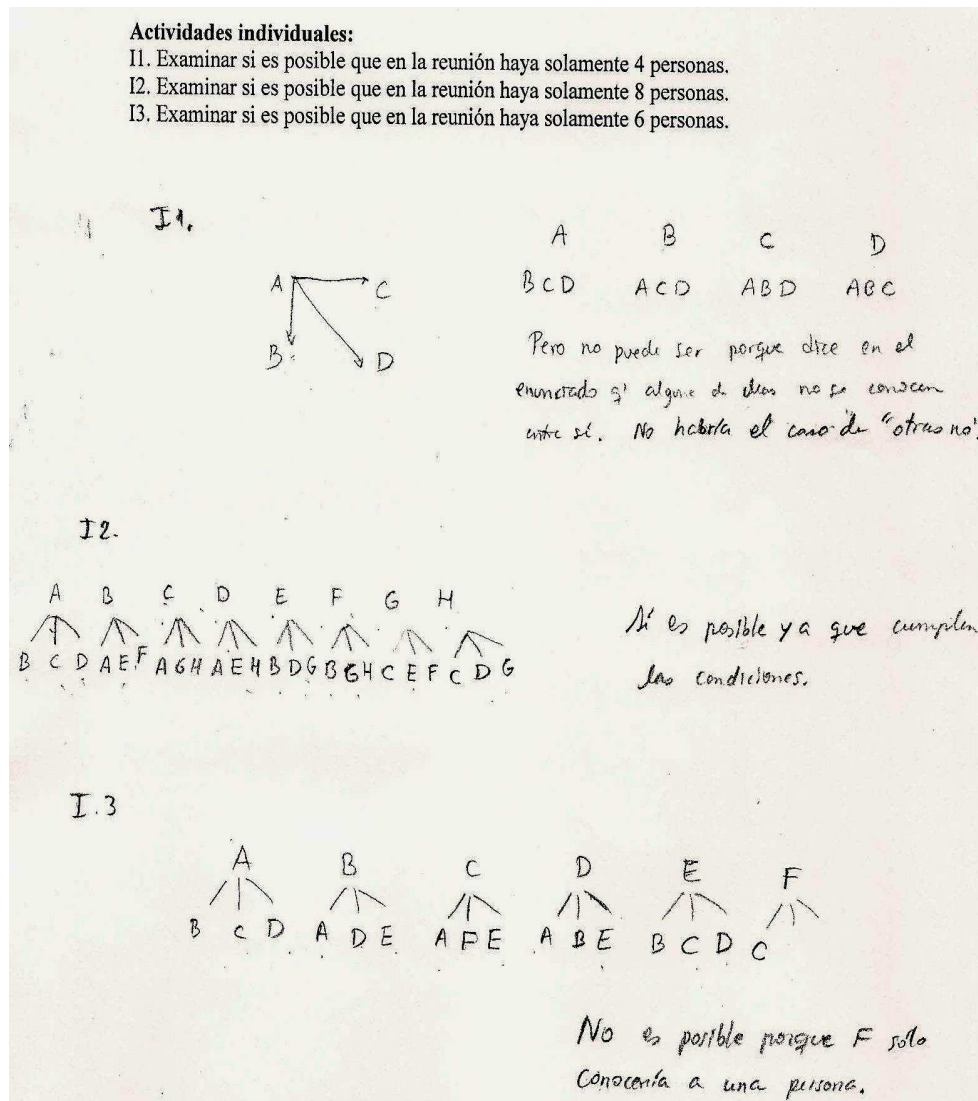 Actividades individuales:
I1. Examinar si es posible que en la reunión haya solamente 4 personas.
I2. Examinar si es posible que en la reunión haya solamente 8 personas.
I3. Examinar si es posible que en la reunión haya solamente 6 personas.
I1.
A C
B D
A B C D
BCD ACD ABD ABC
Pero no puede ser porque dice en el
enunciado q' alguna de ellas no se conocen
entre sí. No habría el caso de "otras no".
I2.
A B C D E F G H
B C D A E F A G H A E H B D G B G H C E F C D G
Sí es posible ya que cumplen
las condiciones.
I.3
A B C D E F
B C D A D E A F E A B E B C D C
No es posible porque F solo
Conocería a una persona.